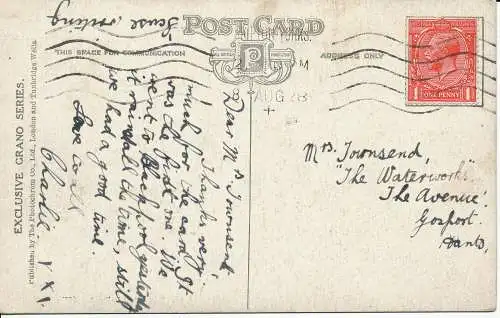 POST CARD
THIS SPACE FOR COMMUNICATION
ADDRESS ONLY
AUG
ONE PENNY
EXCLUSIVE GRANO SERIES.
Published by The Photochrom Co., Ltd., London and Tunbridge Wells.
Dear Mrs Townsend,
Thanks very
much for the card. It
was the first one. We
went to Blackpool yesterday
it rained all the time, still
we had a good time.
Love to all
Charlie XXX
Mrs Townsend,
"The Waterworks"
The Avenue,
Gosport.
Hants.